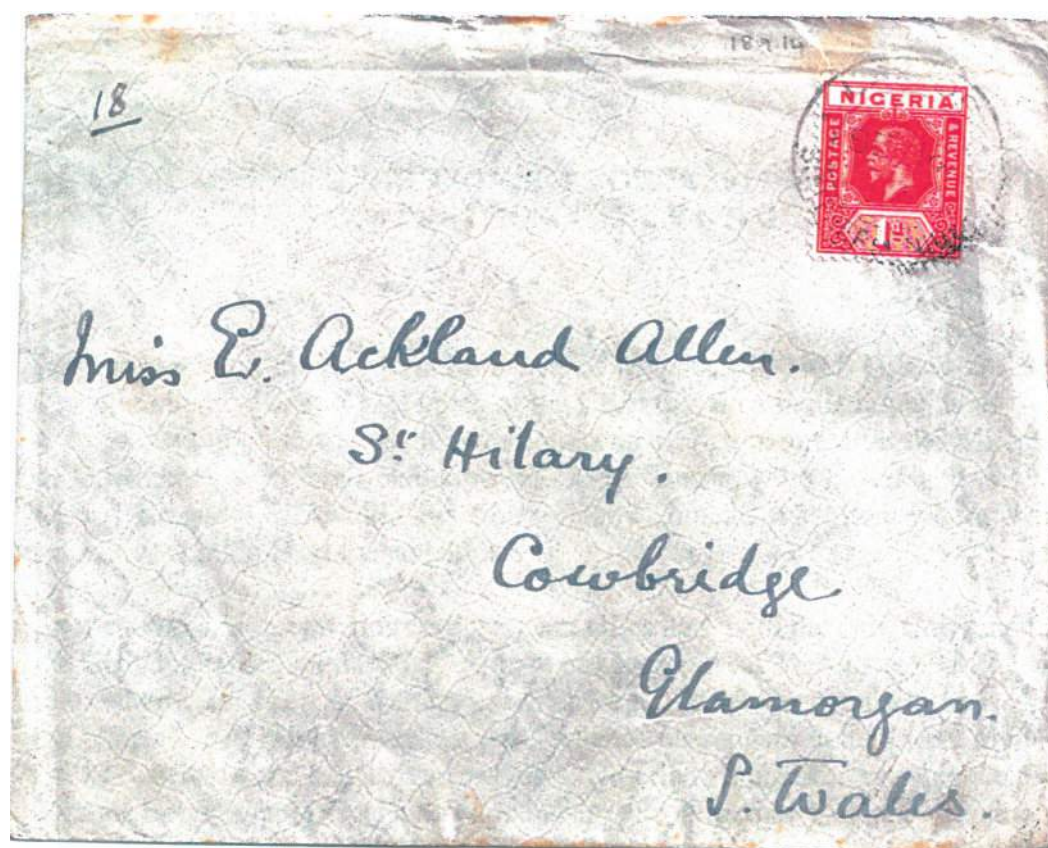 18.9.14
18
NIGERIA
POSTAGE
& REVENUE
1d
Miss E. Ackland Allen.
St Hilary.
Cowbridge
Glamorgan.
S. Wales.